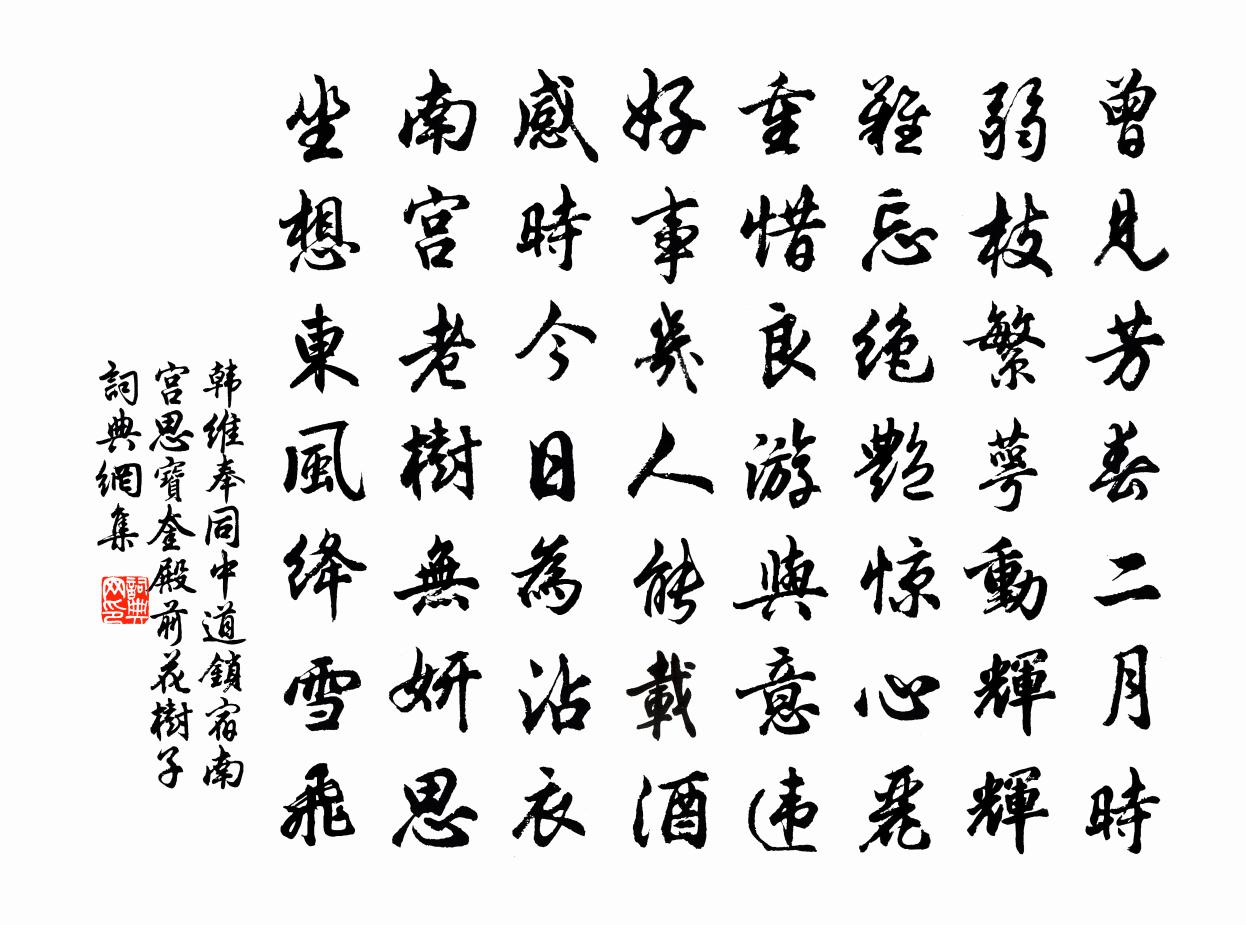 曾見芳春二月時
弱枝繁萼動輝輝
難忘絶艷惊心麗
重惜良游與意违
好事幾人能載酒
感時今日為沾衣
南宮老樹無妍思
坐想東風绛雪飛
韩維奉同中道鎖宿南
宮思寶奎殿前花樹子
詞典網集
詞典